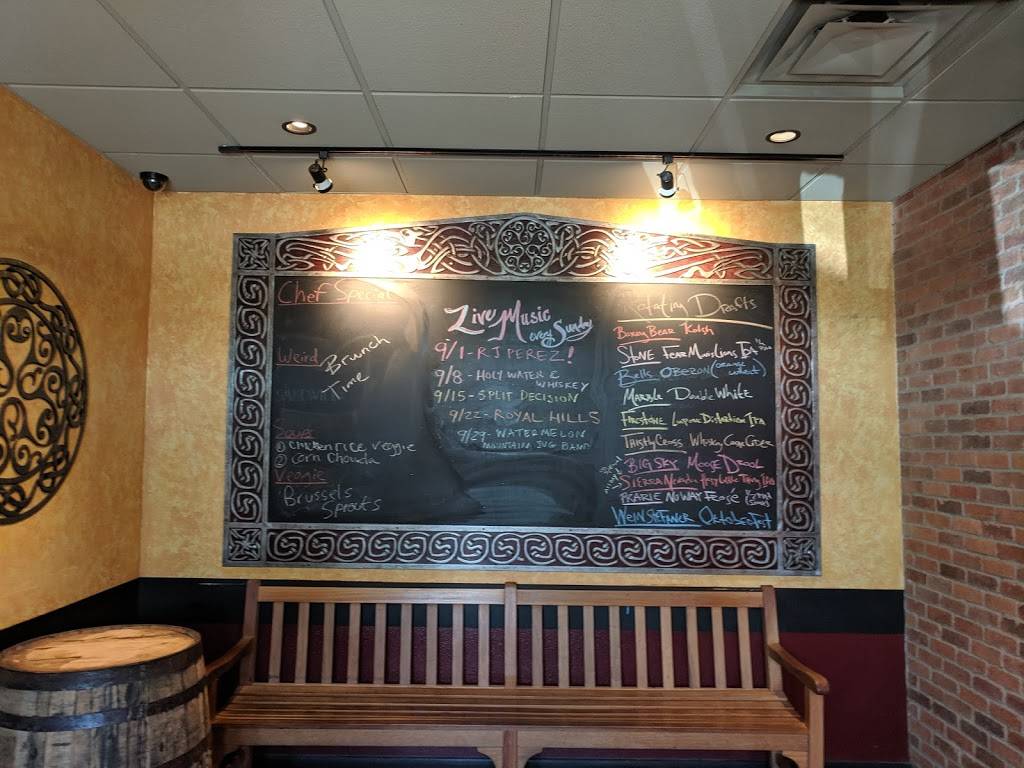 Chef Special
Weird
Brunch
Time
SANDWICH
Soups
Chicken rice veggie
Corn Chowda
Veggie
Brussels
Sprouts
Live Music
every Sunday
9/1 - RJ PEREZ!
9/8 - HOLY WATER &
WHISKEY
9/15 - SPLIT DECISION
9/22 - ROYAL HILLS
9/29 - WATERMELON
MOUNTAIN JUG BAND
Rotating Drafts
Boxing Bear Kolsh
STONE Fear Movie Lions IPA
Bells OBERON
Marble Double White
FIRESTONE Luponic Distortion IPA
Thistly Cross Whiskey Cider
BIG SKY Moose Drool
SIERRA Nevada
PRARIE NO WAY Frosé
Weinstefaner Oktoberfest